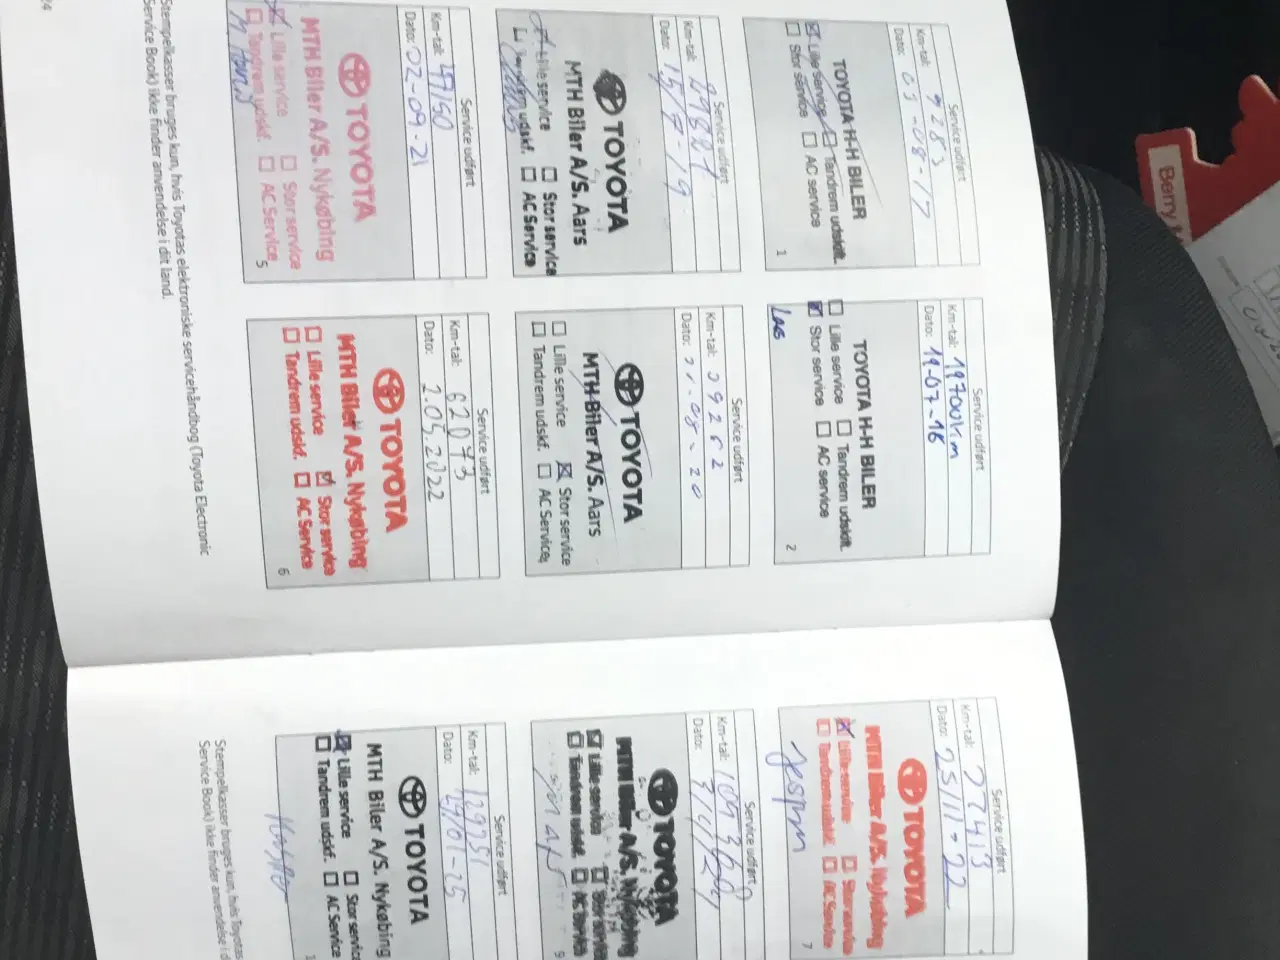 Service udført
Km-tal: 9283
Dato: 03-08-17
TOYOTA H-H BILER
Lille service Tandrem udskift.
Stor service AC service
1
Service udført
Km-tal: 19700km
Dato: 19-07-18
TOYOTA H-H BILER
Lille service Tandrem udskift.
Stor service AC service
2
Las
Service udført
Km-tal:
Dato: 15/7-19
TOYOTA
MTH Biler A/S. Aars
Lille service Stor service
Tandrem udskf. AC Service
Service udført
Km-tal: 39262
Dato: 21-08-20
TOYOTA
MTH Biler A/S. Aars
Lille service Stor service
Tandrem udskf. AC Service
4
Service udført
Km-tal: 49160
Dato: 02-09-21
TOYOTA
MTH Biler A/S. Nykøbing
Lille service Stor service
Tandrem udskf. AC Service
5
Service udført
Km-tal: 62073
Dato: 2.05.2022
TOYOTA
MTH Biler A/S. Nykøbing
Lille service Stor service
Tandrem udskf. AC Service
6
Stempelkasser bruges kun, hvis Toyotas elektroniske servicehåndbog (Toyota Electronic
Service Book) ikke finder anvendelse i dit land.
24
Service udført
Km-tal: 77413
Dato: 25/11-22
TOYOTA
MTH Biler A/S. Nykøbing
Lille service Stor service
Tandrem udskf. AC Service
7
Jespern
Service udført
Km-tal: 109360
Dato: 3/4/24
TOYOTA
MTH Biler A/S. Nykøbing
Lille service Stor service
Tandrem udskf. AC Service
9
Service udført
Km-tal: 129251
Dato: 29/01-25
TOYOTA
MTH Biler A/S. Nykøbing
Lille service Stor service
Tandrem udskf. AC Service
1
Stempelkasser bruges kun, hvis Toyotas
Service Book) ikke finder anvendelse i d
Berry